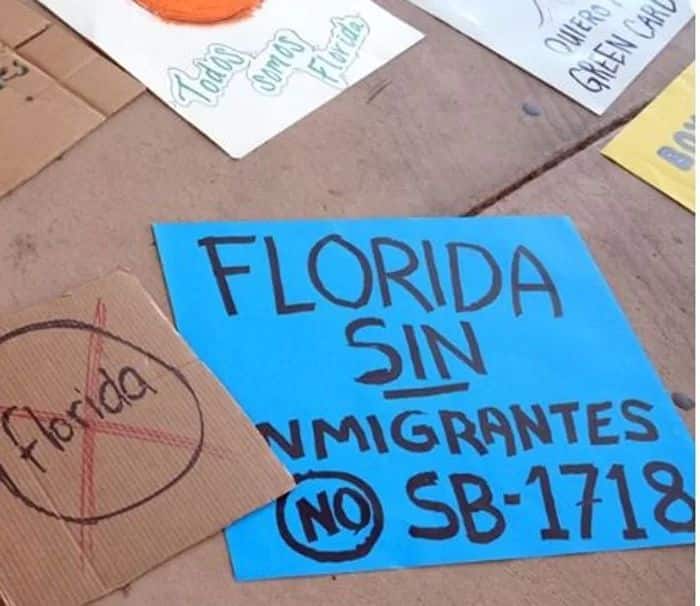 Todos
somos
Florida
QUIERO
GREEN CARD
Florida
FLORIDA
SIN
NMIGRANTES
NO SB-1718